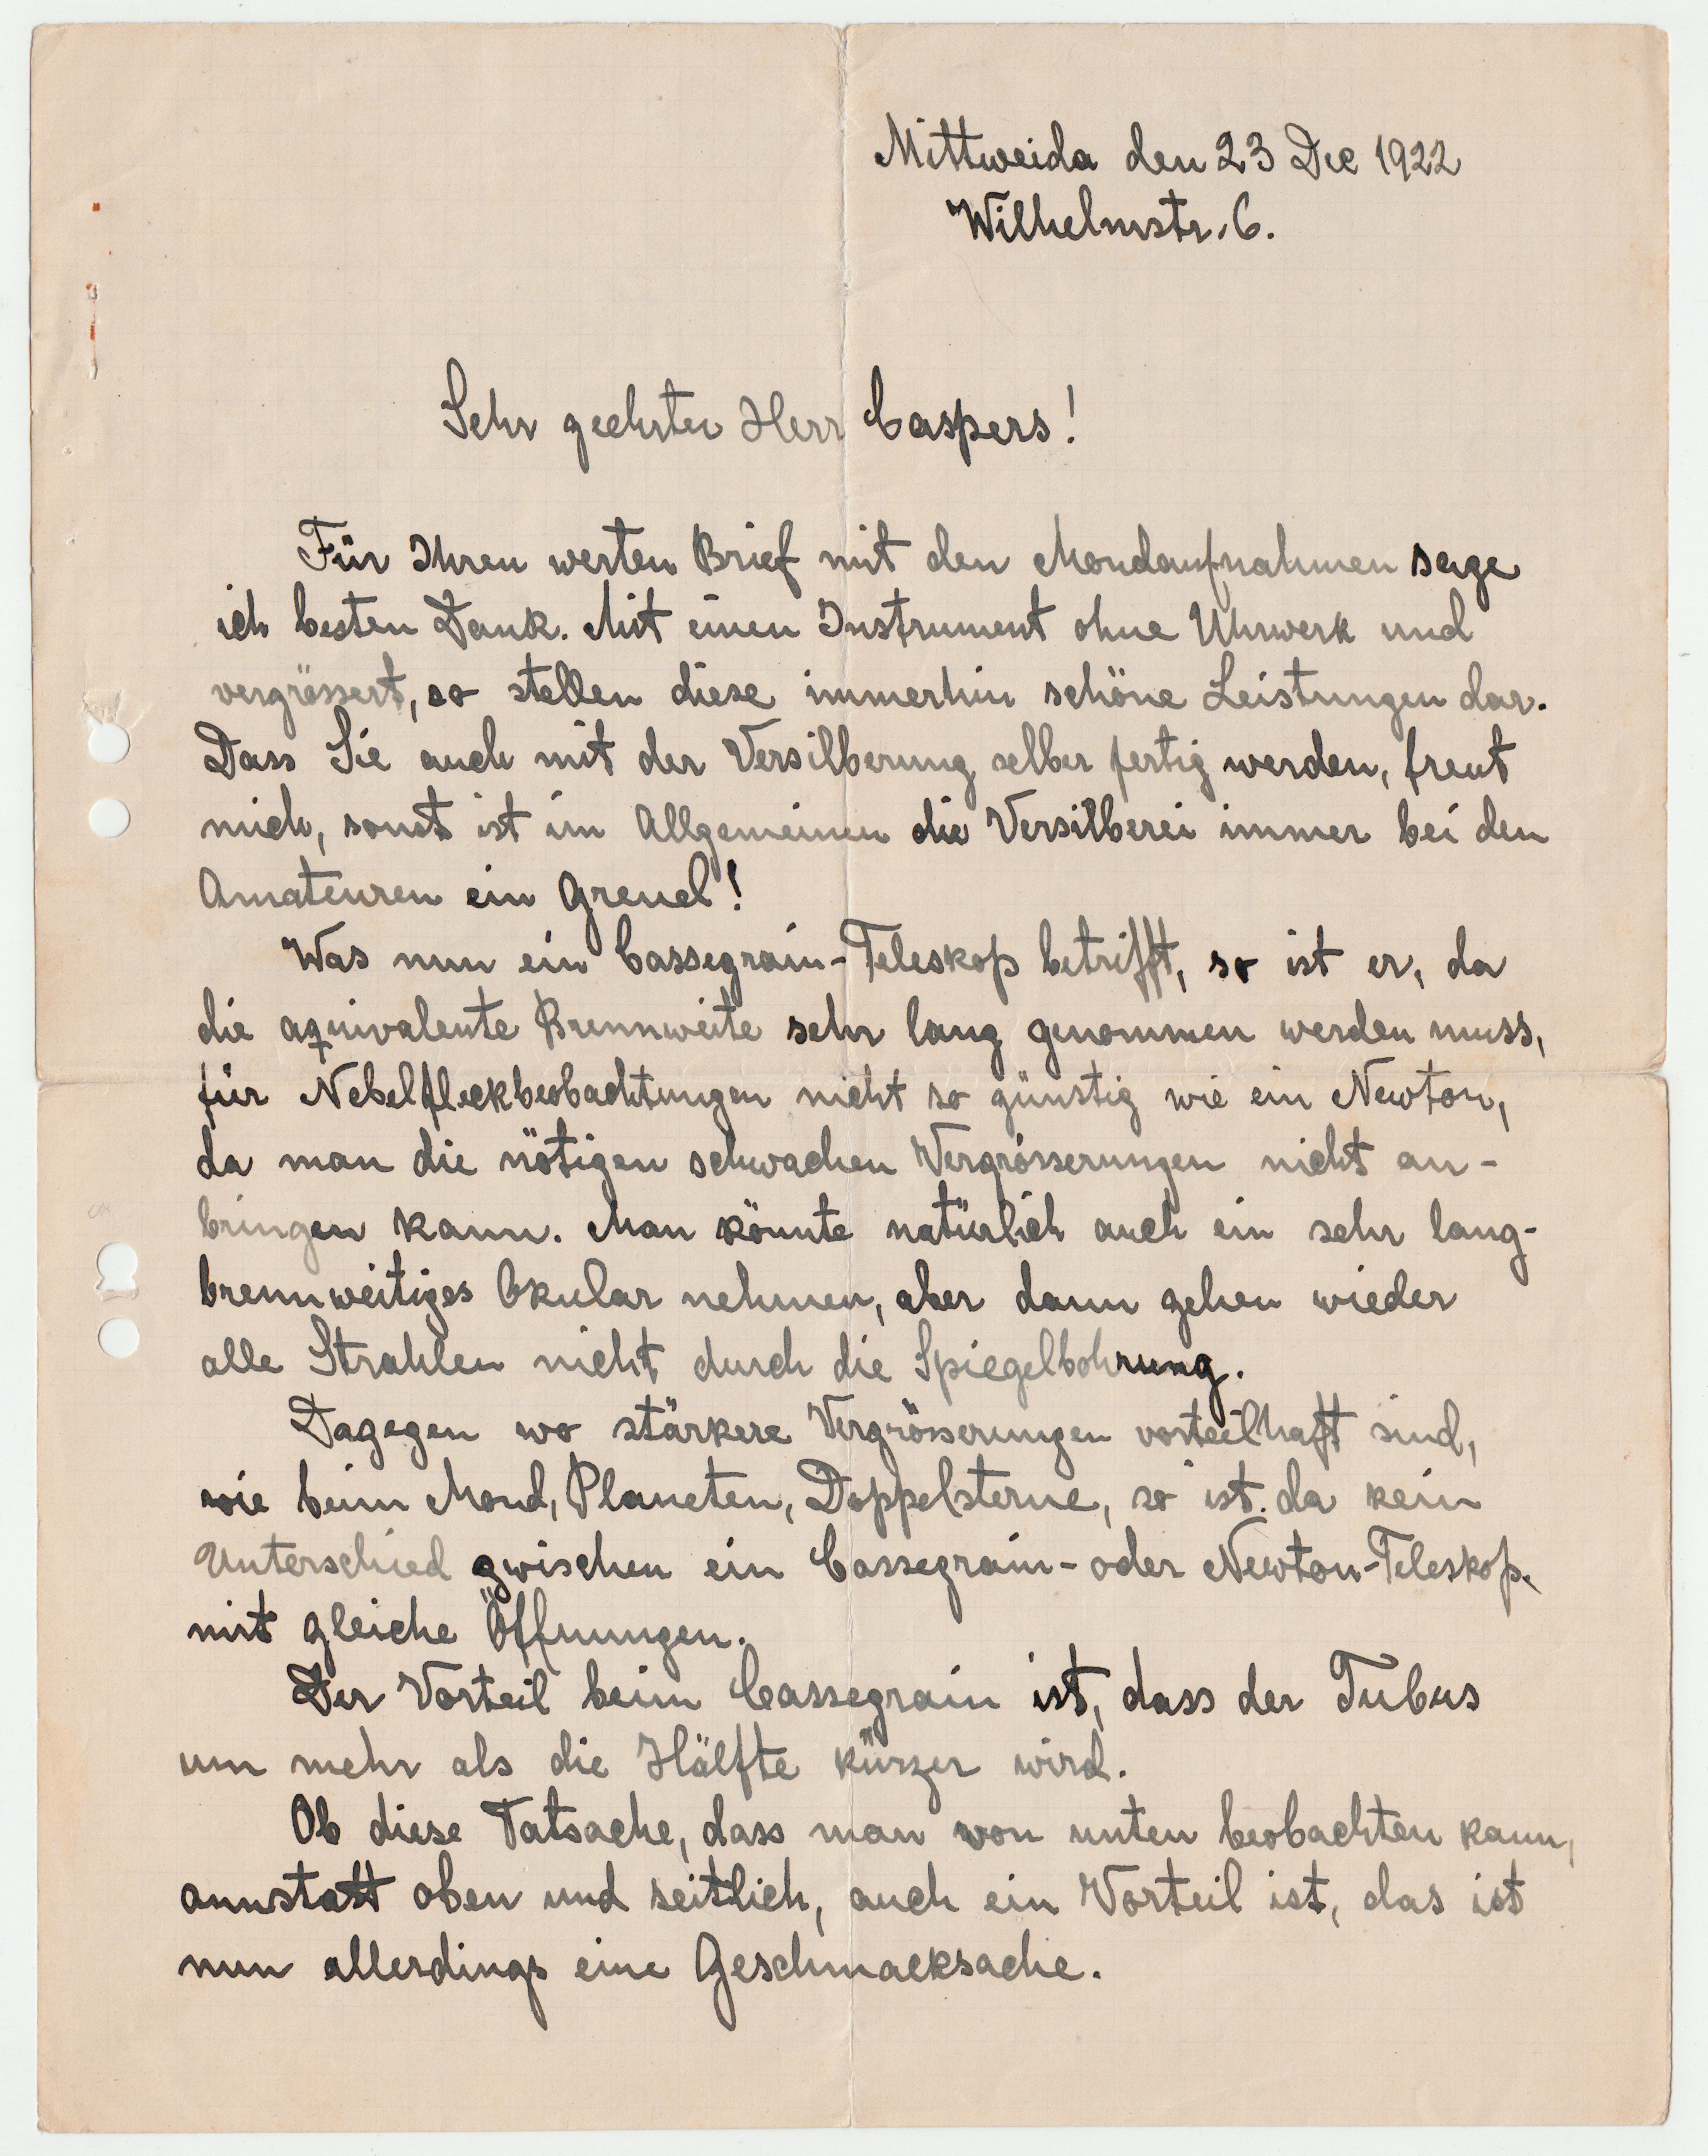 Mittweida den 23 Dec 1922
Wilhelmstr. 6.
Sehr geehrter Herr Caspers!
Für Ihren werten Brief mit den Mondaufnahmen sage
ich besten Dank. Mit einen Instrument ohne Uhrwerk und
vergrössert, so stellen diese immerhin schöne Leistungen dar.
Dass Sie auch mit der Versilberung selber fertig werden, freut
mich, sonst ist im Allgemeinen die Versilberei immer bei den
Amateuren ein Greuel!
Was nun ein Cassegrain-Teleskop betrifft, so ist er, da
die aquivalente Brennweite sehr lang genommen werden muss,
für Nebelfleckbeobachtungen nicht so günstig wie ein Newton,
da man die nötigen schwachen Vergrösserungen nicht an-
bringen kann. Man könnte natürlich auch ein sehr lang-
brennweitiges Okular nehmen, aber dann gehen wieder
alle Strahlen nicht durch die Spiegelbohrung.
Dagegen wo stärkere Vergrösserungen vorteilhaft sind,
wie beim Mond, Planeten, Doppelsterne, so ist da kein
Unterschied zwischen ein Cassegrain- oder Newton-Teleskop
mit gleiche Öffnungen.
Der Vorteil beim Cassegrain ist, dass der Tubus
um mehr als die Hälfte kürzer wird.
Ob diese Tatsache, dass man von unten beobachten kann,
annstatt oben und seitlich, auch ein Vorteil ist, das ist
nun allerdings eine Geschmacksache.